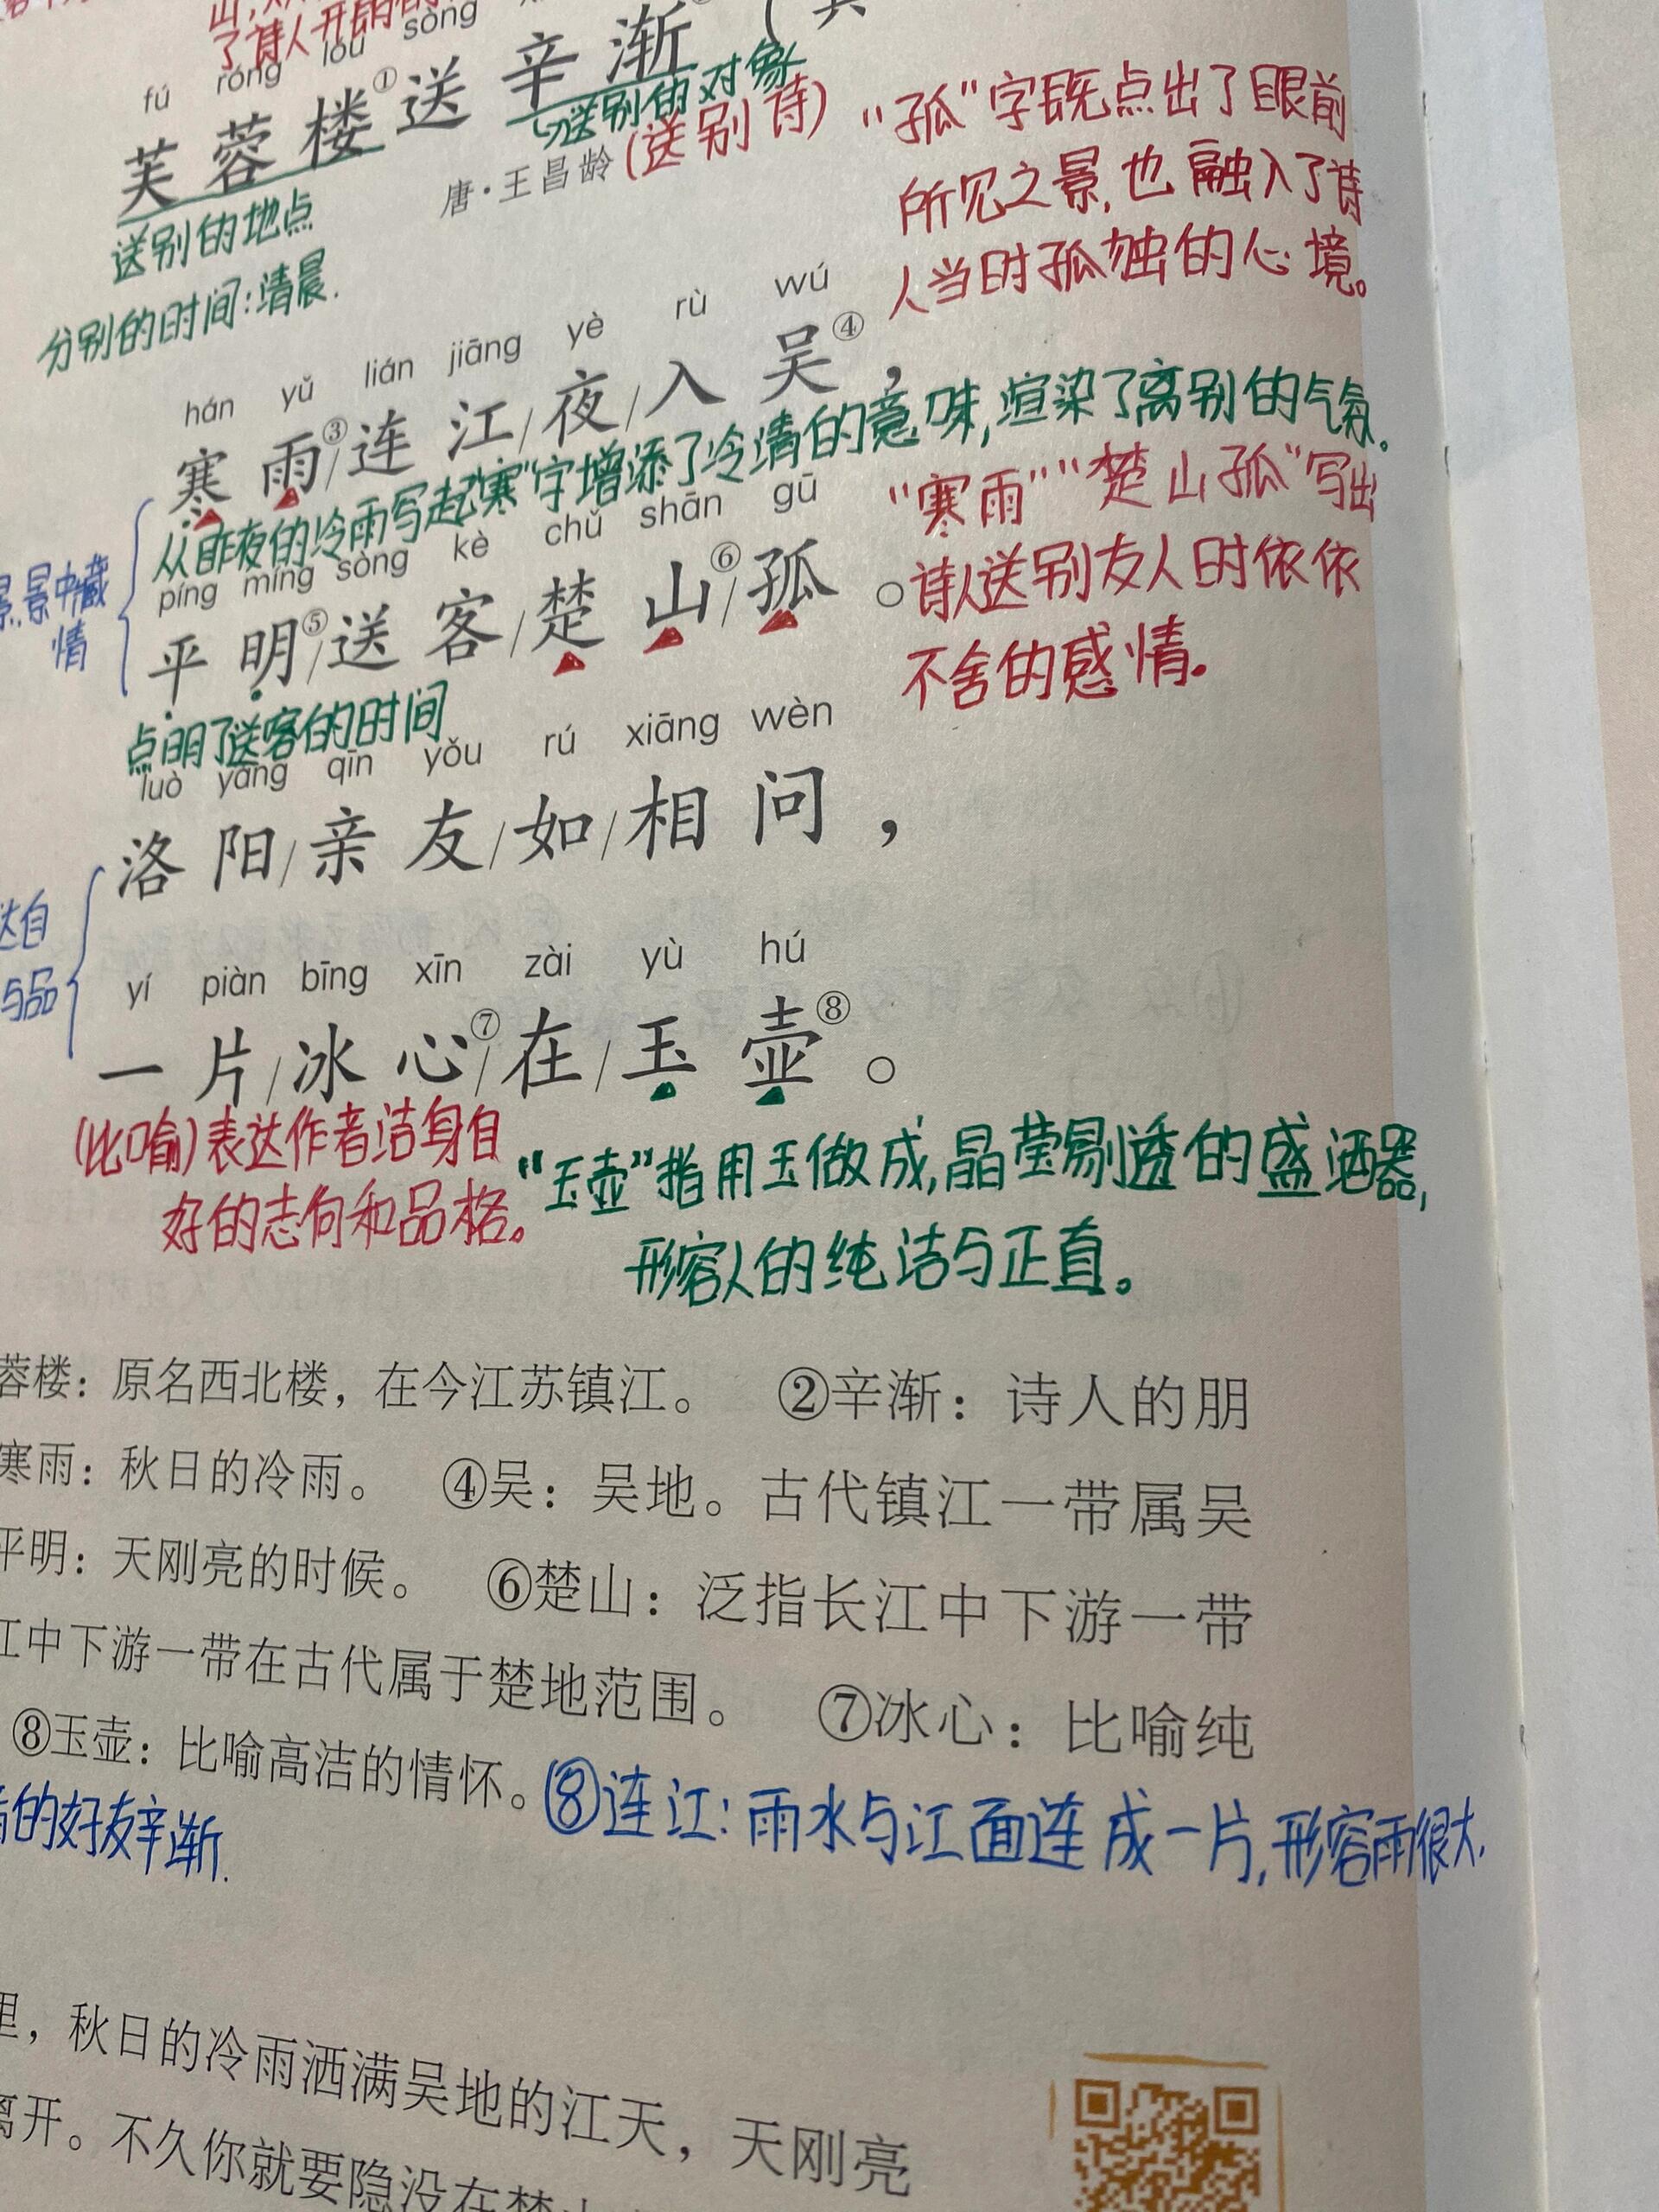 了诗人开
fú róng lóu sòng
芙蓉楼①送辛渐
送别的对象
唐·王昌龄(送别诗)
送别的地点
分别的时间:清晨.
"孤"字既点出了眼前
所见之景,也融入了诗
人当时孤独的心境。
hán yǔ lián jiāng yè rù wú
寒雨③/连江/夜/入吴④,
从昨夜的冷雨写起"寒"字增添了冷清的意味,渲染了离别的气氛。
píng míng sòng kè chǔ shān gū
平明⑤/送客/楚山⑥/孤。
景中藏
情
点明了送客的时间
"寒雨""楚山孤"写出
诗人送别友人时依依
不舍的感情。
luò yáng qīn yǒu rú xiāng wèn
洛阳/亲友/如/相问,
达自
与品
yí piàn bīng xīn zài yù hú
一片/冰心⑦/在/玉壶⑧。
(比喻)表达作者洁身自
好的志向和品格。
"玉壶"指用玉做成,晶莹剔透的盛酒器,
形容人的纯洁与正直。
蓉楼:原名西北楼,在今江苏镇江。 ②辛渐:诗人的朋
寒雨:秋日的冷雨。 ④吴:吴地。古代镇江一带属吴
平明:天刚亮的时候。 ⑥楚山:泛指长江中下游一带
江中下游一带在古代属于楚地范围。 ⑦冰心:比喻纯
⑧玉壶:比喻高洁的情怀。
的好友辛渐.
⑧连江:雨水与江面连成一片,形容雨很大.
里,秋日的冷雨洒满吴地的江天,天刚亮
离开。不久你就要隐没在楚山